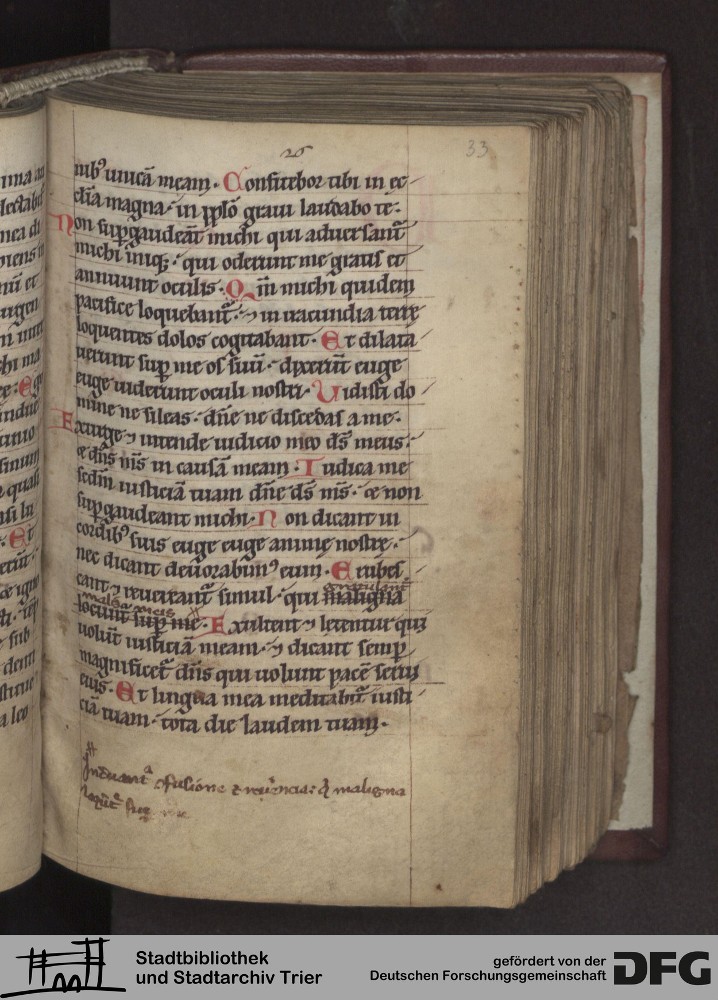 26
33
nibꝰ unicā meam. Confitebor tibi in ec
clīa magna. in pp̄lo graui laudabo te.
Non suꝑgaudeāt michi qui aduersant᷑
michi iniq;. qui oderunt me gratis et
annuunt oculis. Q m̄ michi quidem
pacifice loquebant᷑. ⁊ in iracundia terre
loquentes dolos cogitabant. Et dilata
uerunt suꝑ me os suū. dixerūt euge
euge uiderunt oculi nostri. Uidisti do
mine ne sileas. dn̄e ne discedas a me.
Exurge ⁊ intende iudicio meo ds̄ meus.
et dn̄s ms̄ in causā meam. Iudica me
scdm̄ iusticiā tuam dn̄e ds̄ ms̄. et non
suꝑgaudeant michi. Non dicant in
cordibꝰ suis euge euge anime nostre.
nec dicant deuorabimꝰ eum. Erubes
cant ⁊ reuereant᷑ simul. qui maligna
loqunt᷑ suꝑ me. Exultent ⁊ letentur qui
malis meis
uolūt iusticiā meam. ⁊ dicant semꝑ
magnificet᷑ dn̄s qui uolunt pacē serui
eius. Et lingua mea meditabit᷑ iusti
ciā tuam. tota die laudem tuam.
Induant᷑ ꝯfusione ⁊ reuerēcia: qͥ maligna
loqūt᷑ suꝑ me
Stadtbibliothek
und Stadtarchiv Trier
gefördert von der
Deutschen Forschungsgemeinschaft
DFG